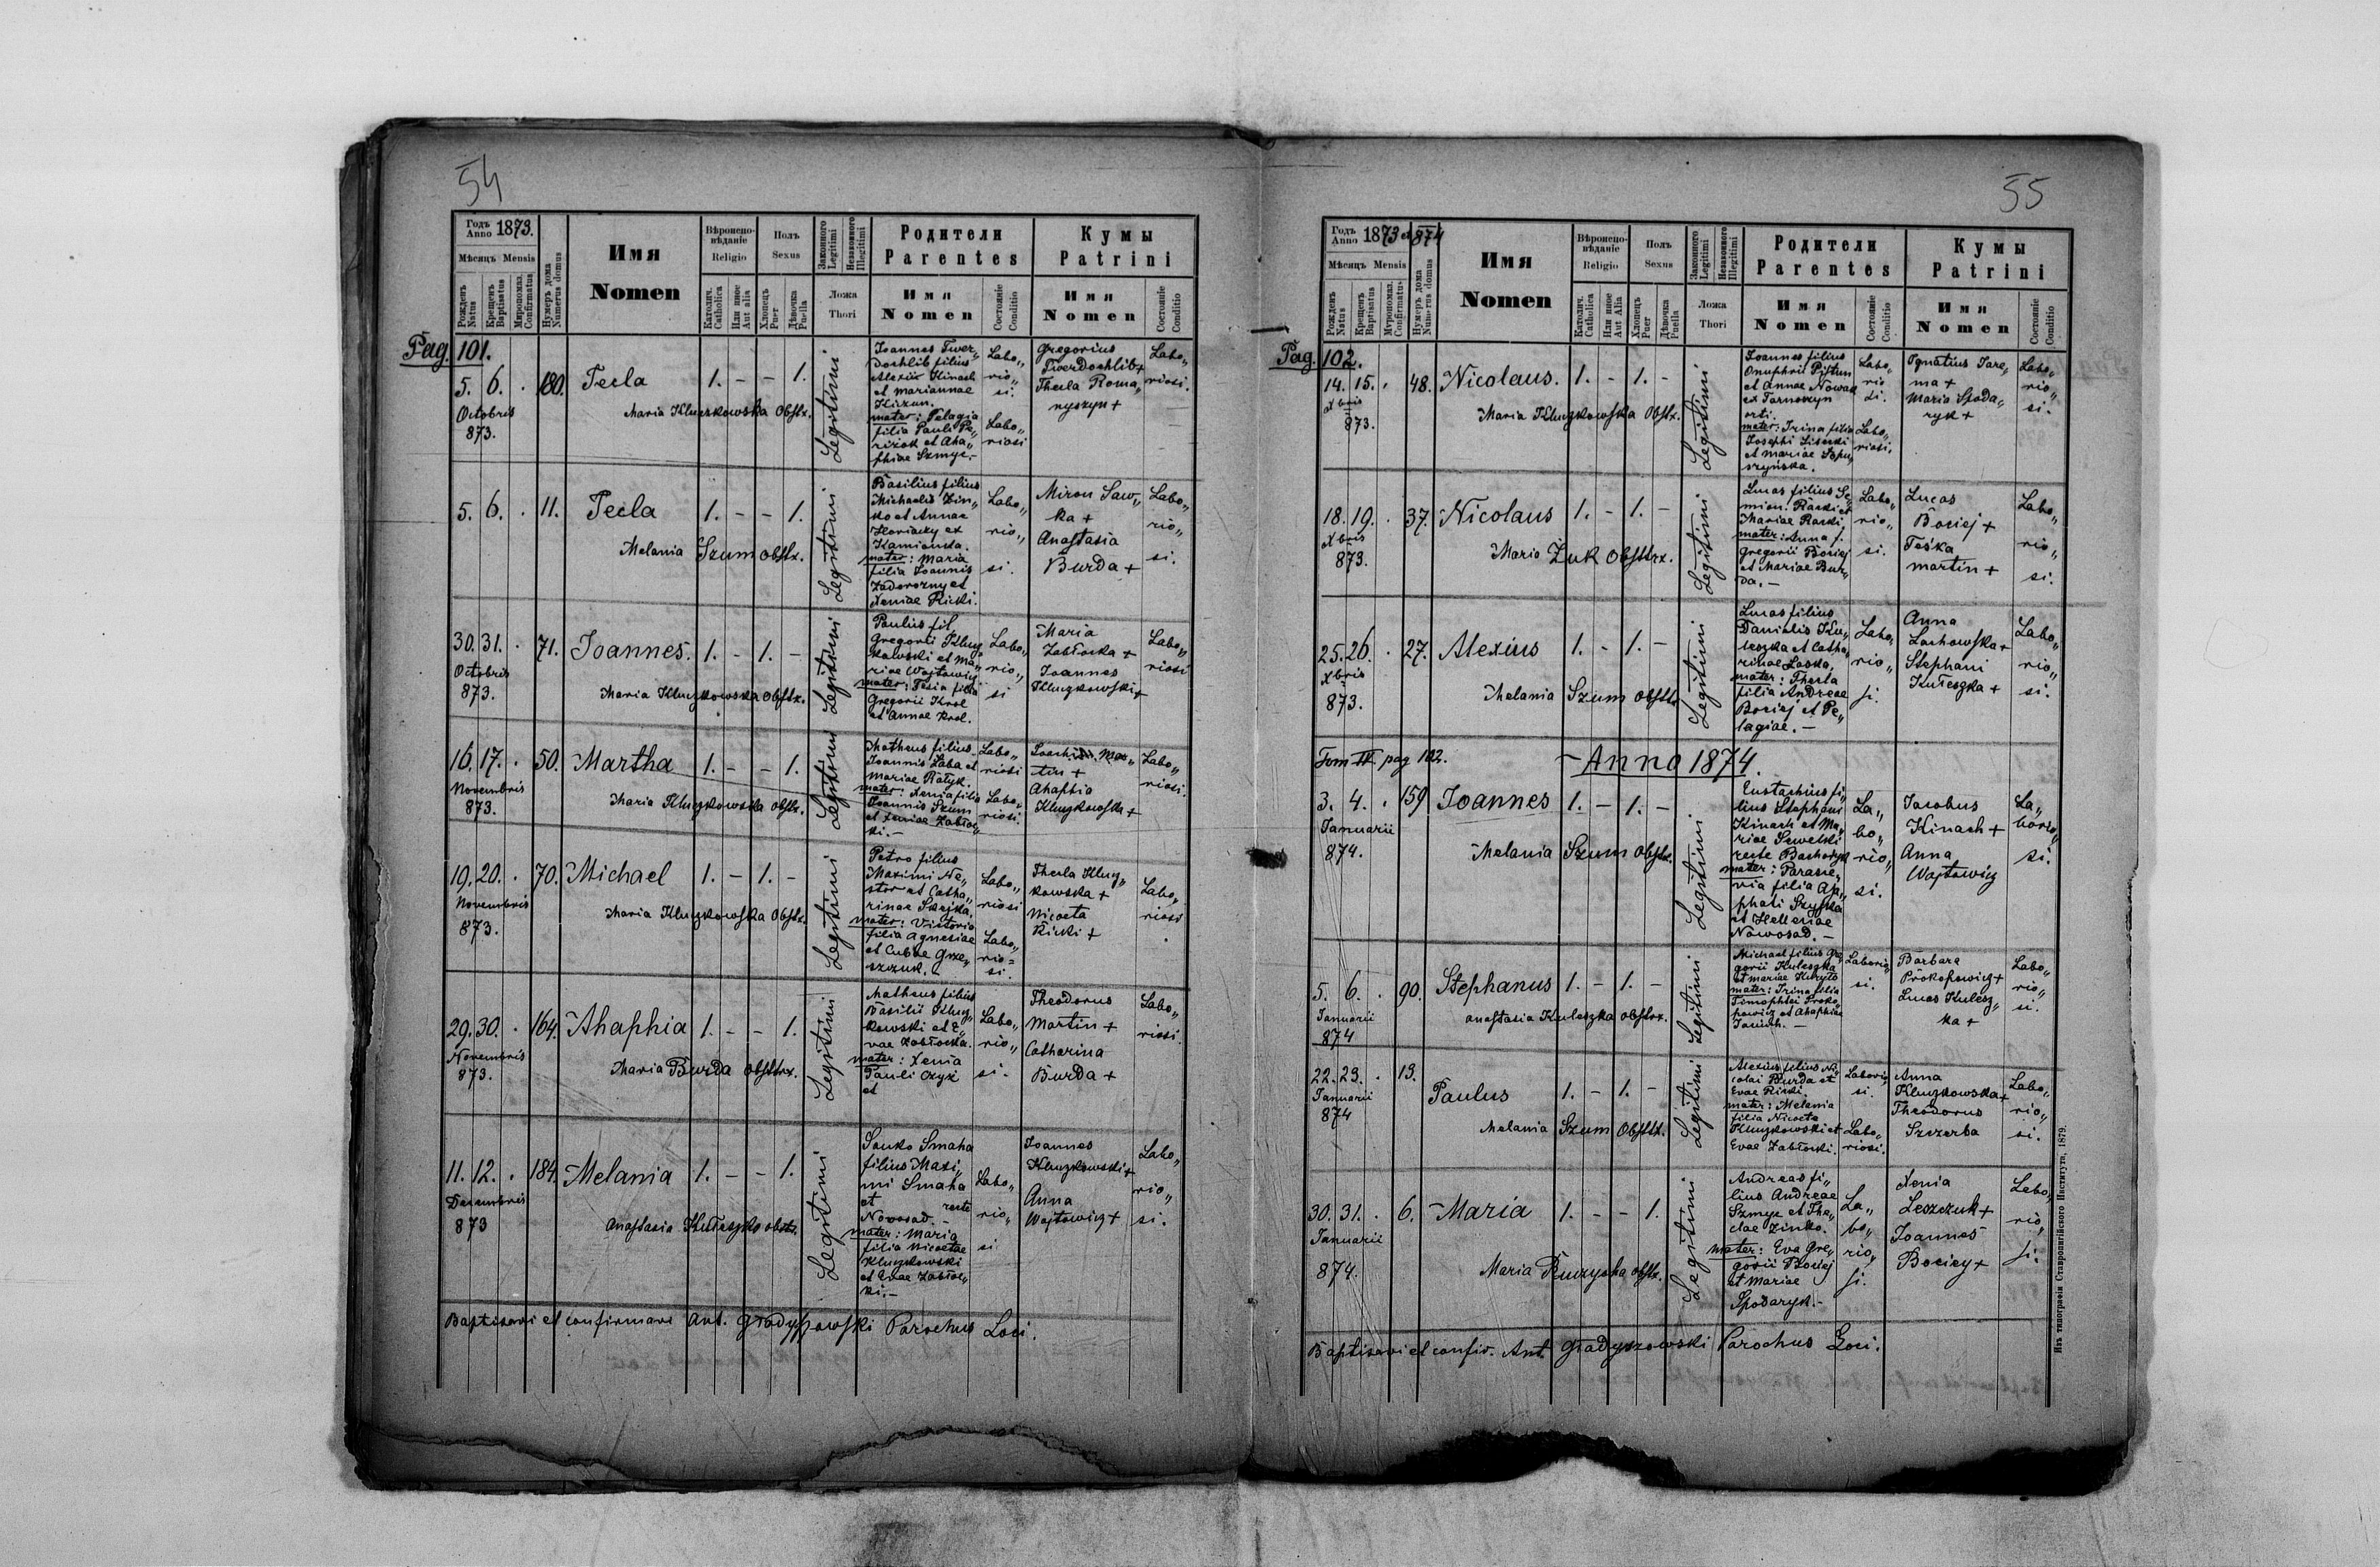 54
Годъ Anno 1873.
Мѣсяцъ Mensis
Рожденъ Natus
Крещенъ Baptisatus
Миропомаз. Confirmatus
Нумеръ дома Numerus domus
Имя
Nomen
Вѣроисповѣданіе
Religio
Католич. Catholica
Или иное Aut alia
Полъ
Sexus
Хлопецъ Puer
Дѣвочка Puella
Законного Legitimi
Незаконного Illegitimi
Ложа
Thori
Родители
Parentes
Имя
Nomen
Состояніе Conditio
Кумы
Patrini
Имя
Nomen
Состояніе Conditio
Pag. 101.
5. 6. . 180. Tecla 1. - - 1.
Octobris
873.
Maria Kluczkowska Obstx.
Legitimi
Joannes Twer„
dochlib filius
Alexii Kinach
et Mariannae
Kiczun.
mater: Pelagia
filia Pauli Pe„
riżok et Aha„
phiae Szmyc.-
Labo„
rio„
si.
Labo„
riosi
Gregorius
Twerdochlib +
Thecla Roma„
nyszyn +
Labo„
riosi.
5. 6. . 11. Tecla 1. - - 1.
Melania Szum Obstx.
Legitimi
Basilius filius
Michaelis Zin„
ko et Annae
ex
Kamionka.
mater: Maria
filia Joannis
Zadorozny et
Xeniae Ricki.
Labo„
rio„
si.
Miron Saw„
ka +
Anastasia
Burda +
Labo„
rio„
si.
30. 31. . 71. Joannes. 1. - 1. -
Octobris
873.
Maria Kluczkowska Obstx.
Legitimi
Paulus fil.
Gregorii Klucz„
kowski et Ma„
riae Wojtowicz
mater: Tesia filia
Gregorii Krol
et Annae Krol.
Labo„
rio„
si
Maria
Zabłocka +
Joannes
Kluczkowski +
Labo„
riosi
16. 17. . 50. Martha 1. - - 1.
Novembris
873.
Maria Kluczkowska Obstx.
Legitimi
Matheus filius
Joannis Łaba et
Mariae Ratyk.
mater: Xenia filia
Joannis Szum
et Xeniae Zabłoc„
ki.-
Labo„
riosi
Labo„
riosi.
Mar„
tin +
Ahaphia
Kluczkowska +
Labo„
riosi.
19. 20. . 70. Michael 1. - 1. -
Novembris
873.
Maria Kluczkowska Obstx.
Legitimi
Petro filius
Maximi Ne„
stor et Catha„
rinae
mater: Victoria
filia Agnesiae
et Cubae Grze„
szczuk.
Labo„
riosi
Labo„
rio=
si.
Thecla Klucz„
kowska +
Nicoeta
Ricki +
Labo„
riosi
29. 30. . 164. Ahaphia 1. - - 1.
Novembris
873.
Maria Burda Obstrx.
Legitimi
Matheus filius
Basilii Klucz„
kowski et E„
vae Zabłocka.
mater: Xenia
Pauli Czyż
et
Labo„
rio„
si.
Theodorus
Martin +
Catharina
Burda +
Labo„
riosi.
11. 12. . 184. Melania 1. - - 1.
Decembris
873
Anastasia Kułeszka obstr.
Legitimi
Sanko Smaha
filius Maxi„
mi Smaha
et recte
Nowosad.-
mater: Maria
filia Nicoetae
Kluczkowski
et Evae Zabłoc„
ki.-
Labo„
rio„
si
Joannes
Kluczkowski +
Anna
Wojtowicz +
Labo„
rio„
si.
Baptisavi et confirmavi Ant. Gradyszowski Parochus Loci.
55
Годъ Anno 1873 et 874
Мѣсяцъ Mensis
Рожденъ Natus
Крещенъ Baptisatus
Мѵропомаз. Confirmatus
Нумеръ дома Numerus domus
Имя
Nomen
Вѣроисповѣданіе
Religio
Католич. Catholica
Или иное Aut Alia
Полъ
Sexus
Хлопецъ Puer
Дѣвочка Puella
Законного Legitimi
Незаконного Illegitimi
Ложа
Thori
Родители
Parentes
Имя
Nomen
Состояніе Conditio
Кумы
Patrini
Имя
Nomen
Состояніе Conditio
Pag. 102.
14. 15. . 48. Nicolaus. 1. - 1. -
Xbris
873.
Maria Kluczkowska Obstx.
Legitimi
Joannes filius
Onuphrii Pistun
et Annae Nowak
ex Tarnoszyn
orti.
mater: Irina filia
Josephi Lisecki
et Mariae Łopu„
szyńska.
Labo„
rio
si.
Labo„
riosi.
Ignatius Jare„
ma +
Maria Spoda„
ryk +
Labo„
rio„
si.
18. 19. . 37. Nicolaus 1. - 1. -
Xbris
873.
Maria Żuk Obsttrx.
Legitimi
Lucas filius Se„
mion. Raski et
Mariae Raski,
mater: Anna f.
Gregorii Bociej
et Mariae Bur„
da.-
Labo„
rio„
si.
Lucas
Bociej +
Teśka
Martin +
Labo„
rio„
si.
25. 26. . 27. Alexius 1. - 1. -
Xbris
873.
Melania Szum Obstx
Legitimi
Lucas filius
Danielis Ku„
leszka et Catha„
rinae Laska.
mater: Thecla
filia Andreae
Bociej et Pe„
lagiae.-
Labo„
rio„
si.
Anna
Lachowska +
Stephani
Kułeszka +
Labo„
rio„
si.
Tom IV pag 102. - Anno 1874.
3. 4. . 159 Joannes 1. - 1. -
Januarii
874.
Melania Szum Obstx.
Legitimi
Eustachius fi„
lius Stephani
Kinach et Ma„
riae Sewelski
recte
mater: Parasce„
via filia Aga„
phati Szyjka
et Helleniae
Nowosad.-
La„
bo„
rio„
si.
Jacobus
Kinach +
Anna
Wojtowicz
La„
borio„
si.
5. 6. . 90. Stephanus 1. - 1. -
Januarii
874
Anastasia Kuleszka obstrx.
Legitimi
Michael filius Gre„
gorii Kuleszka
et Mariae Kuryło
mater: Irina filia
Timophtei Proko„
powicz et Ahaphiae
Laborio„
si.
Barbara
Prokopowicz +
Lucas Kulesz„
ka +
Labo„
rio„
si.
22. 23. . 13. Paulus 1. - 1. -
Januarii
874
Melania Szum Obsttx.
Legitimi
Alexius filius Ni„
colai Burda et
Evae Ricki.
mater: Melania
filia Nicoeta
Kluczkowski et
Evae Zabłocki.
Laborio„
si.
Labo„
riosi.
Anna
Kluczkowska +
Theodorus
Szczerba
Labo„
rio„
si.
30. 31. . 6. Maria 1. - - 1.
Januarii
874.
Maria Obstx.
Legitimi
Andreas fi„
lius Andreae
Szmyc et The„
clae Zinko.
mater: Eva Gre„
gorii Bociej
et Mariae
Spodaryk.-
La„
bo„
rio„
si.
Xenia
Leszczuk +
Joannes
Bociey +
Labo„
rio„
si.
Baptisavi et confir. Ant. Gradyszowski Parochus Loci.
Изъ типографіи Ставропигійского Института, 1879.